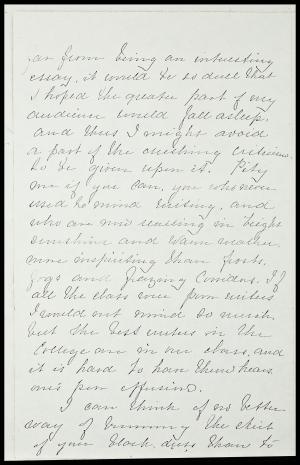 far from being an interesting
essay, it would be so dull that
I hoped the greater part of my
audience would fall asleep,
and thus I might avoid
a part of the crushing criticisms
to be given upon it. Pity
me if you can, you who never
used to mind writing, and
who are now reveling in bright
sunshine and warm weather,
more inspiriting than frosts,
fogs and freezing
If
all the class were poor writers
I would not mind so much,
but the best writers in the
College are in our class, and
it is hard to have them hear
one's poor effusions.
I can think of no better
way of trimming the skirt
of your black dress than to